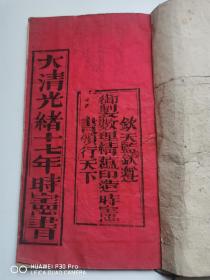 欽天監欽遵
御製數理精蘊印造時憲
書頒行天下
大清光緒十七年時憲書
HUAWEI P30 Pro